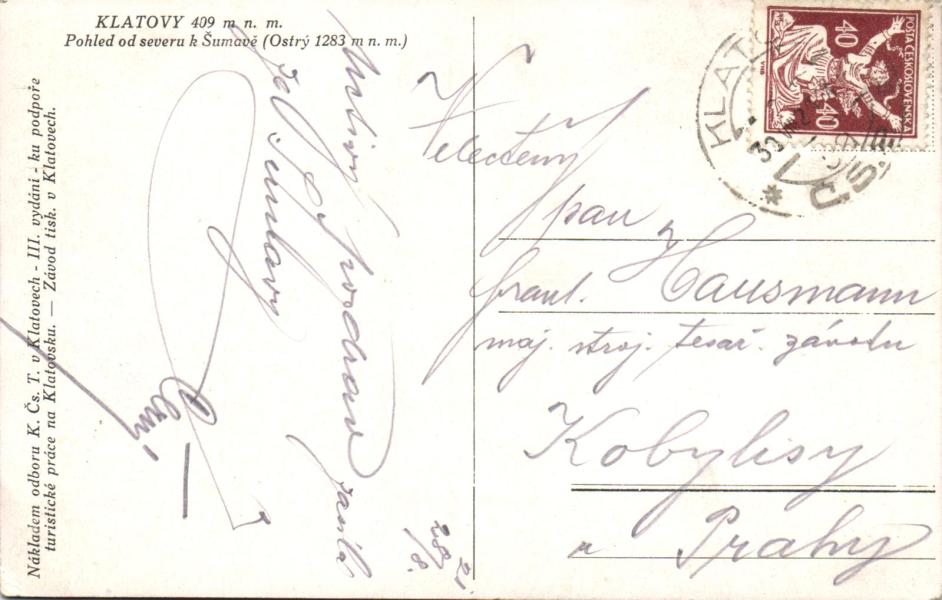 KLATOVY 409 m n. m.
Pohled od severu k Šumavě (Ostrý 1283 m n. m.)
Nákladem odboru K. Čs. T. v Klatovech - III. vydání - ku podpoře
turistické práce na Klatovsku. — Závod tisk. v Klatovech.
Srdečný pozdrav
ze Šumavy
zasílá
28/8. 21
POŠTA ČESKOSLOVENSKÁ
40
40
KLAT
Č.S.
Velectěný
pan
Frant. Hausmann
maj. stroj. tesař. závodu
Kobylisy
u Prahy